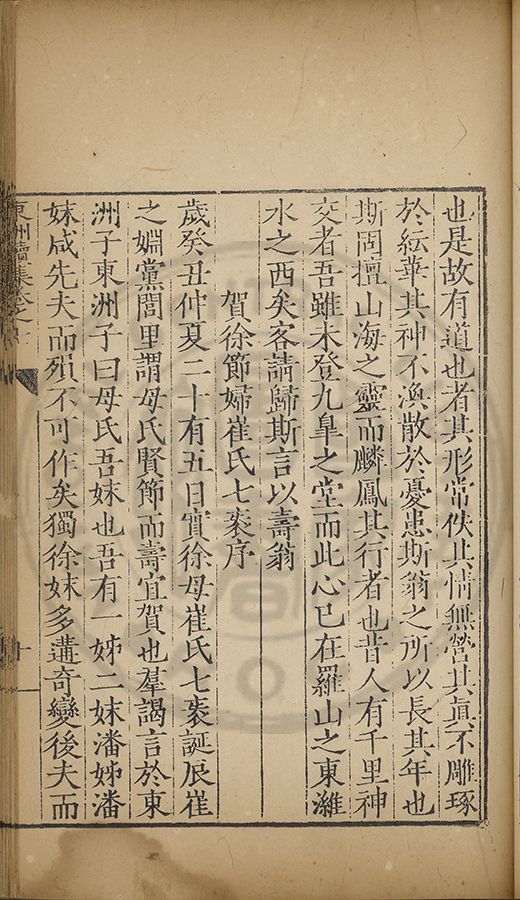 也是故有道也者其形常佚其情無營其眞不雕琢
於紜華其神不渙散於憂患斯翁之所以長其年也
斯固擅山海之靈而麟鳳其行者也昔人有千里神
交者吾雖未登九臯之堂而此心已在羅山之東濰
水之西矣客請歸斯言以壽翁
賀徐節婦崔氏七袠序
歲癸丑仲夏二十有五日實徐母崔氏七袠誕辰崔
之姻黨閭里謂母氏賢節而壽宜賀也羣謁言於東
洲子東洲子曰母氏吾妹也吾有一姊二妹潘姊潘
妹咸先夫而殞不可作矣獨徐妹多遘奇變後夫而
東洲續集卷之